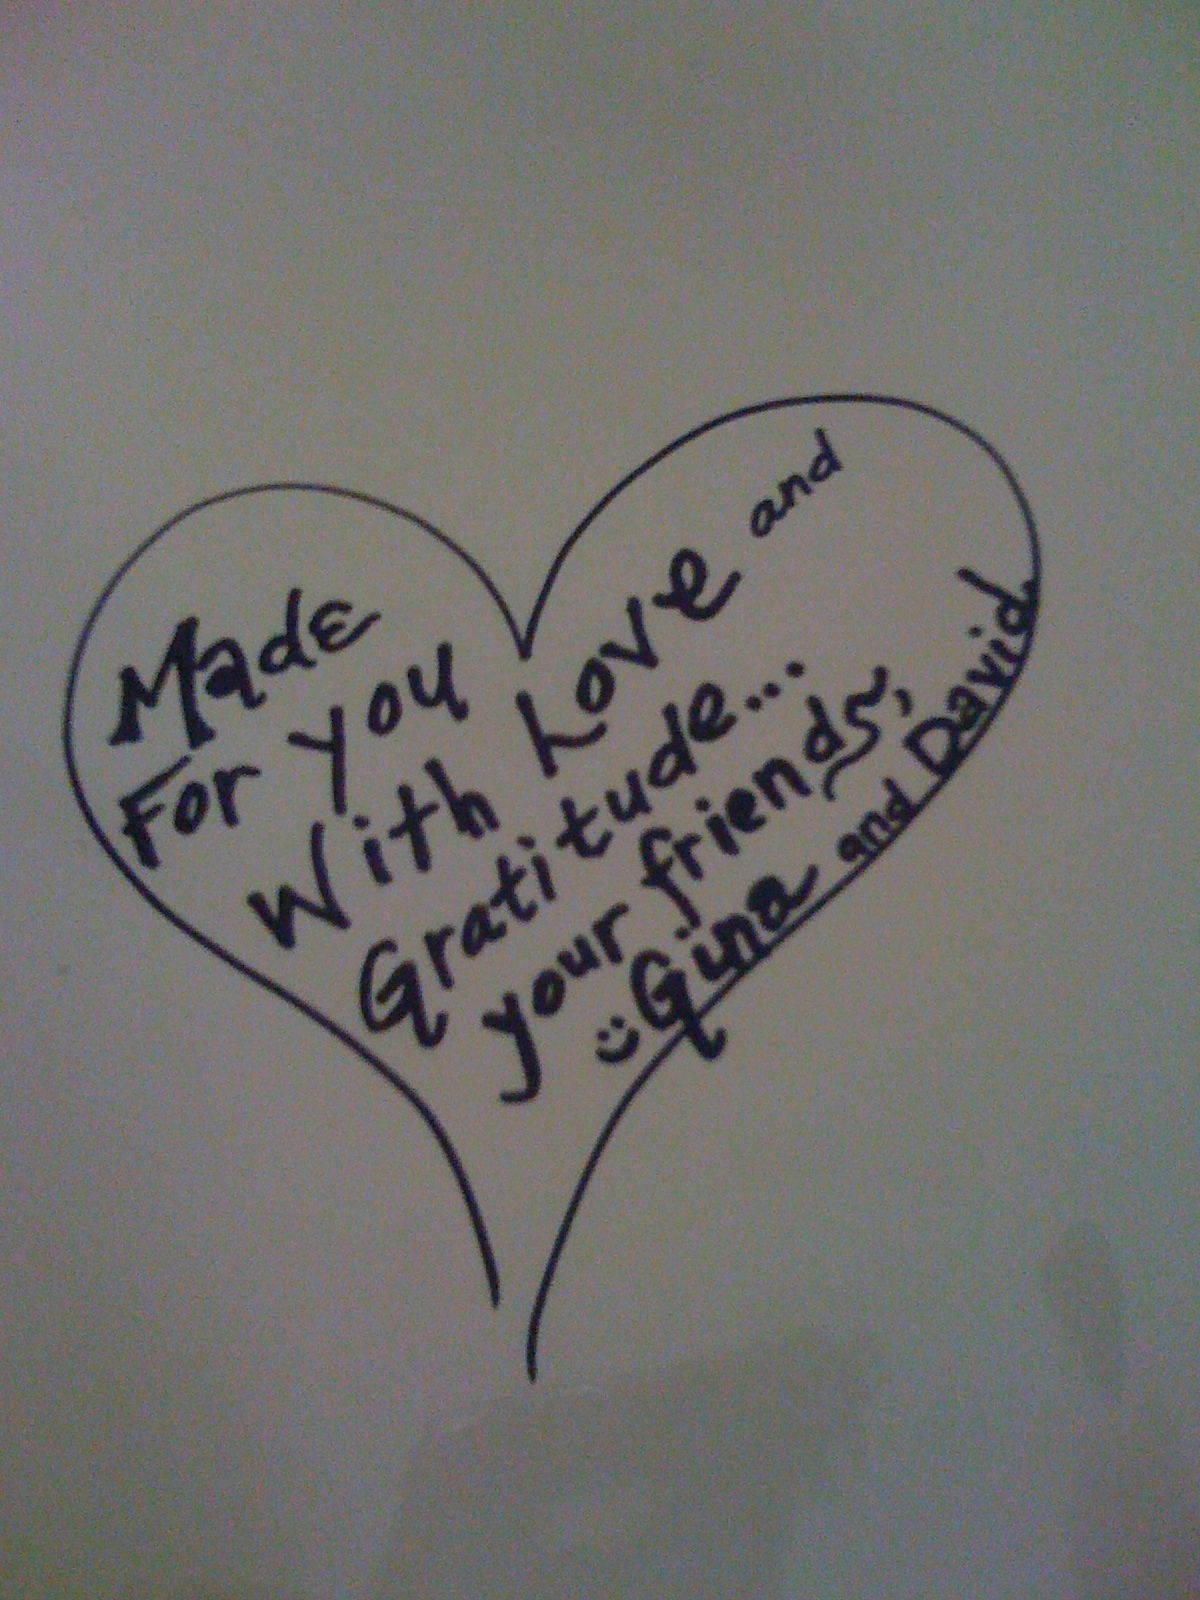 Made
For you
With Love and
Gratitude...
your friends,
Gina and David